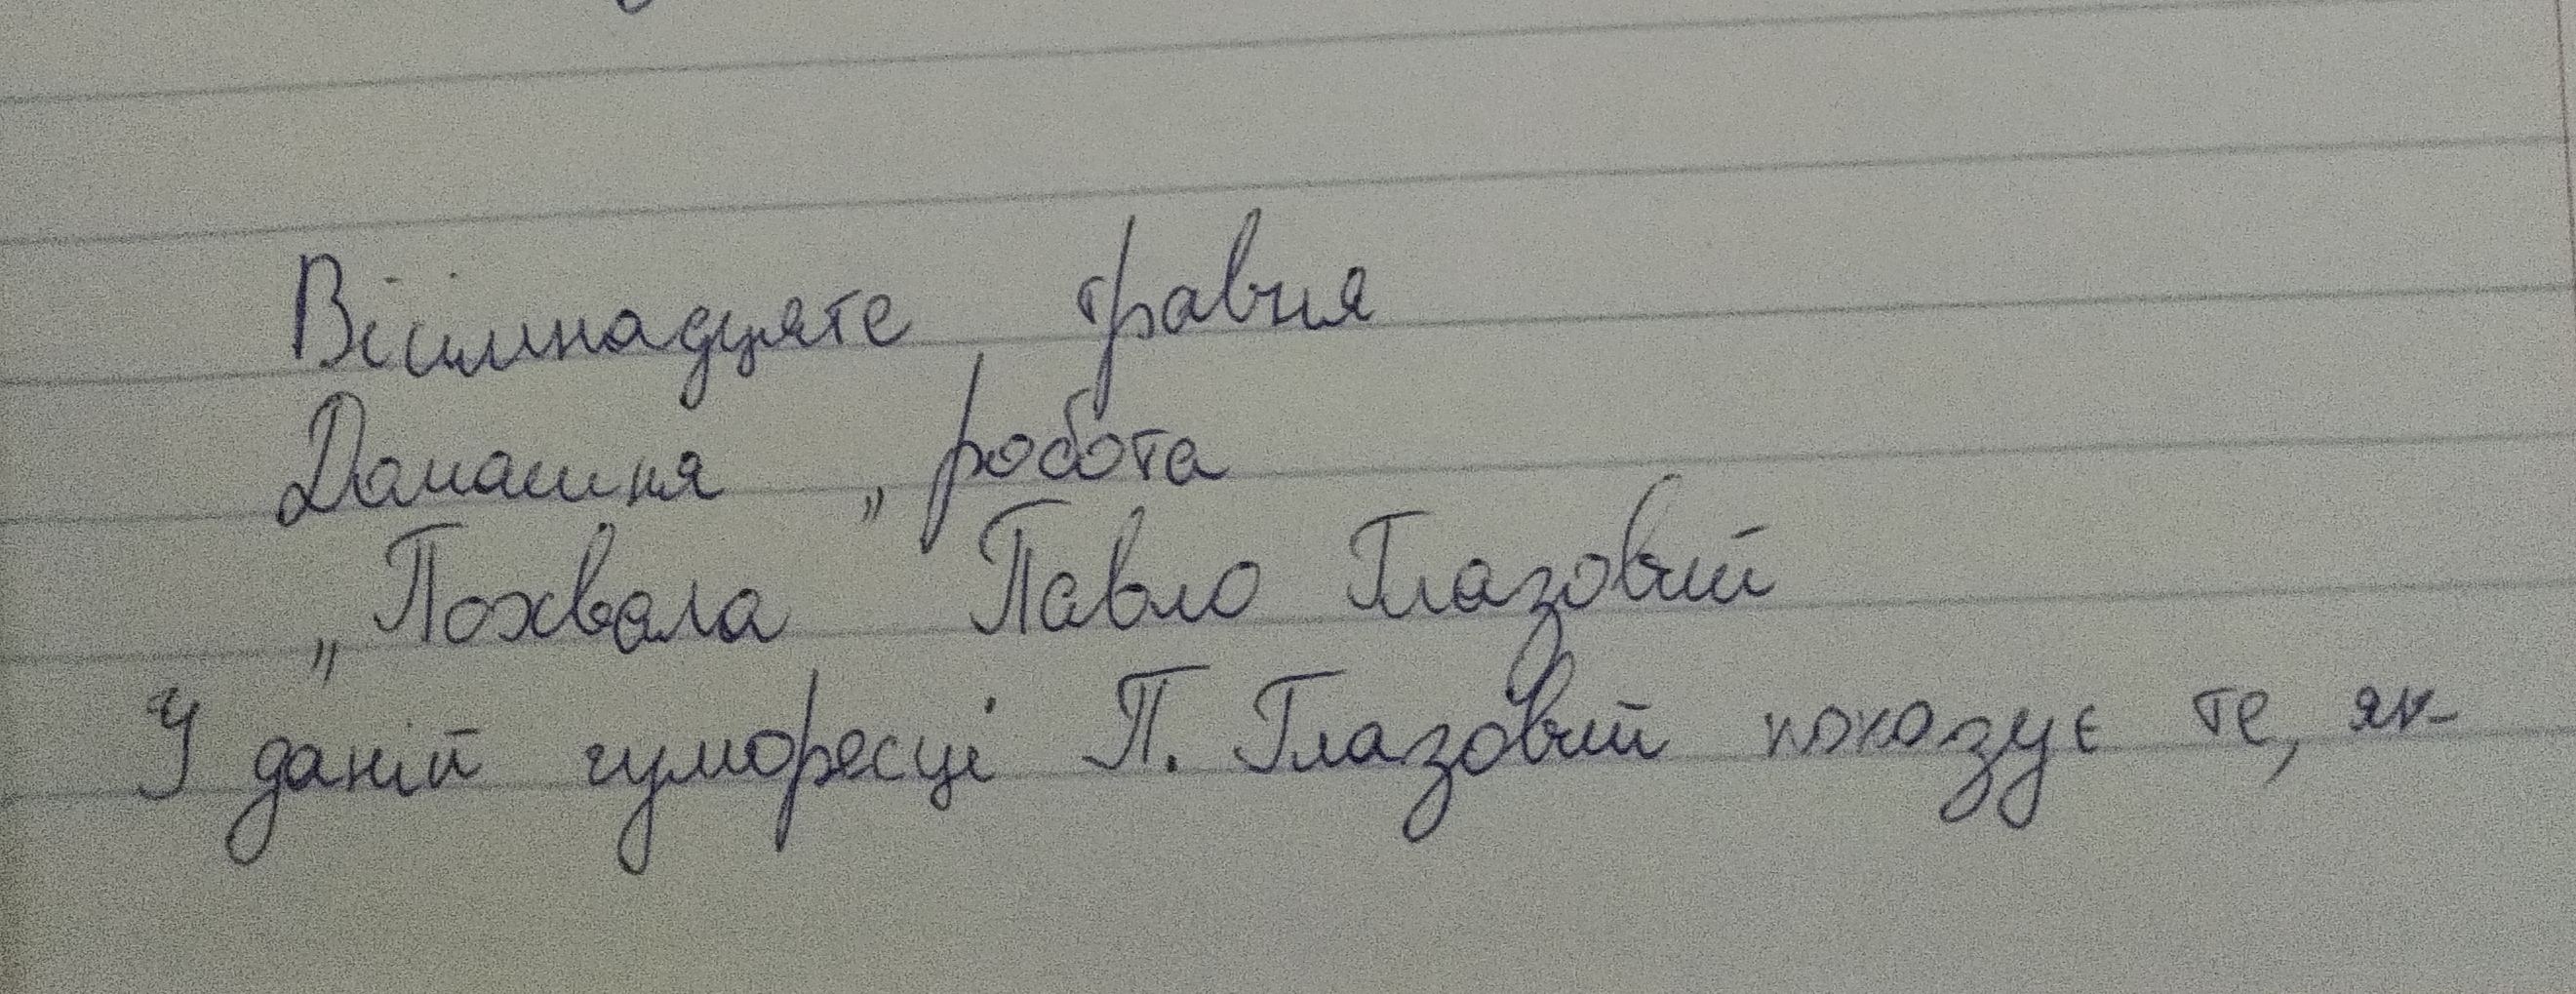 Вісімнадцяте травня
Домашня робота
„Похвала" Павло Глазовий
У даній гуморесці П. Глазовий показує те, як-